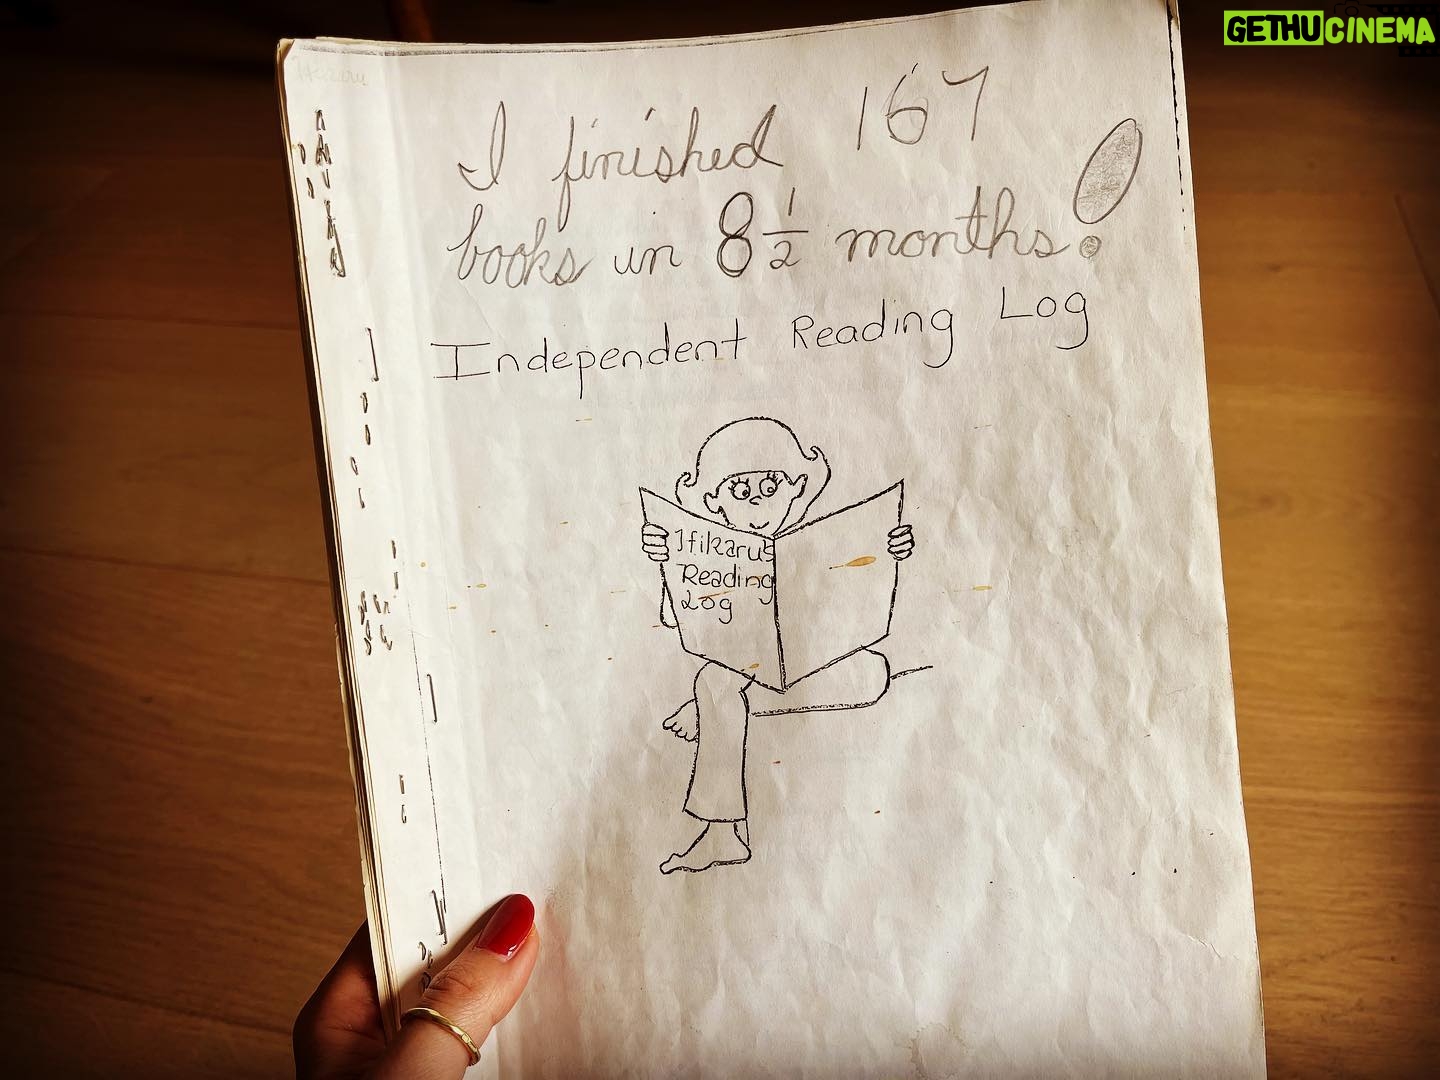 GETHUCINEMA
Hikaru
I finished 167
books in 8 1/2 months!
Independent Reading Log
Hikaru's
Reading
Log